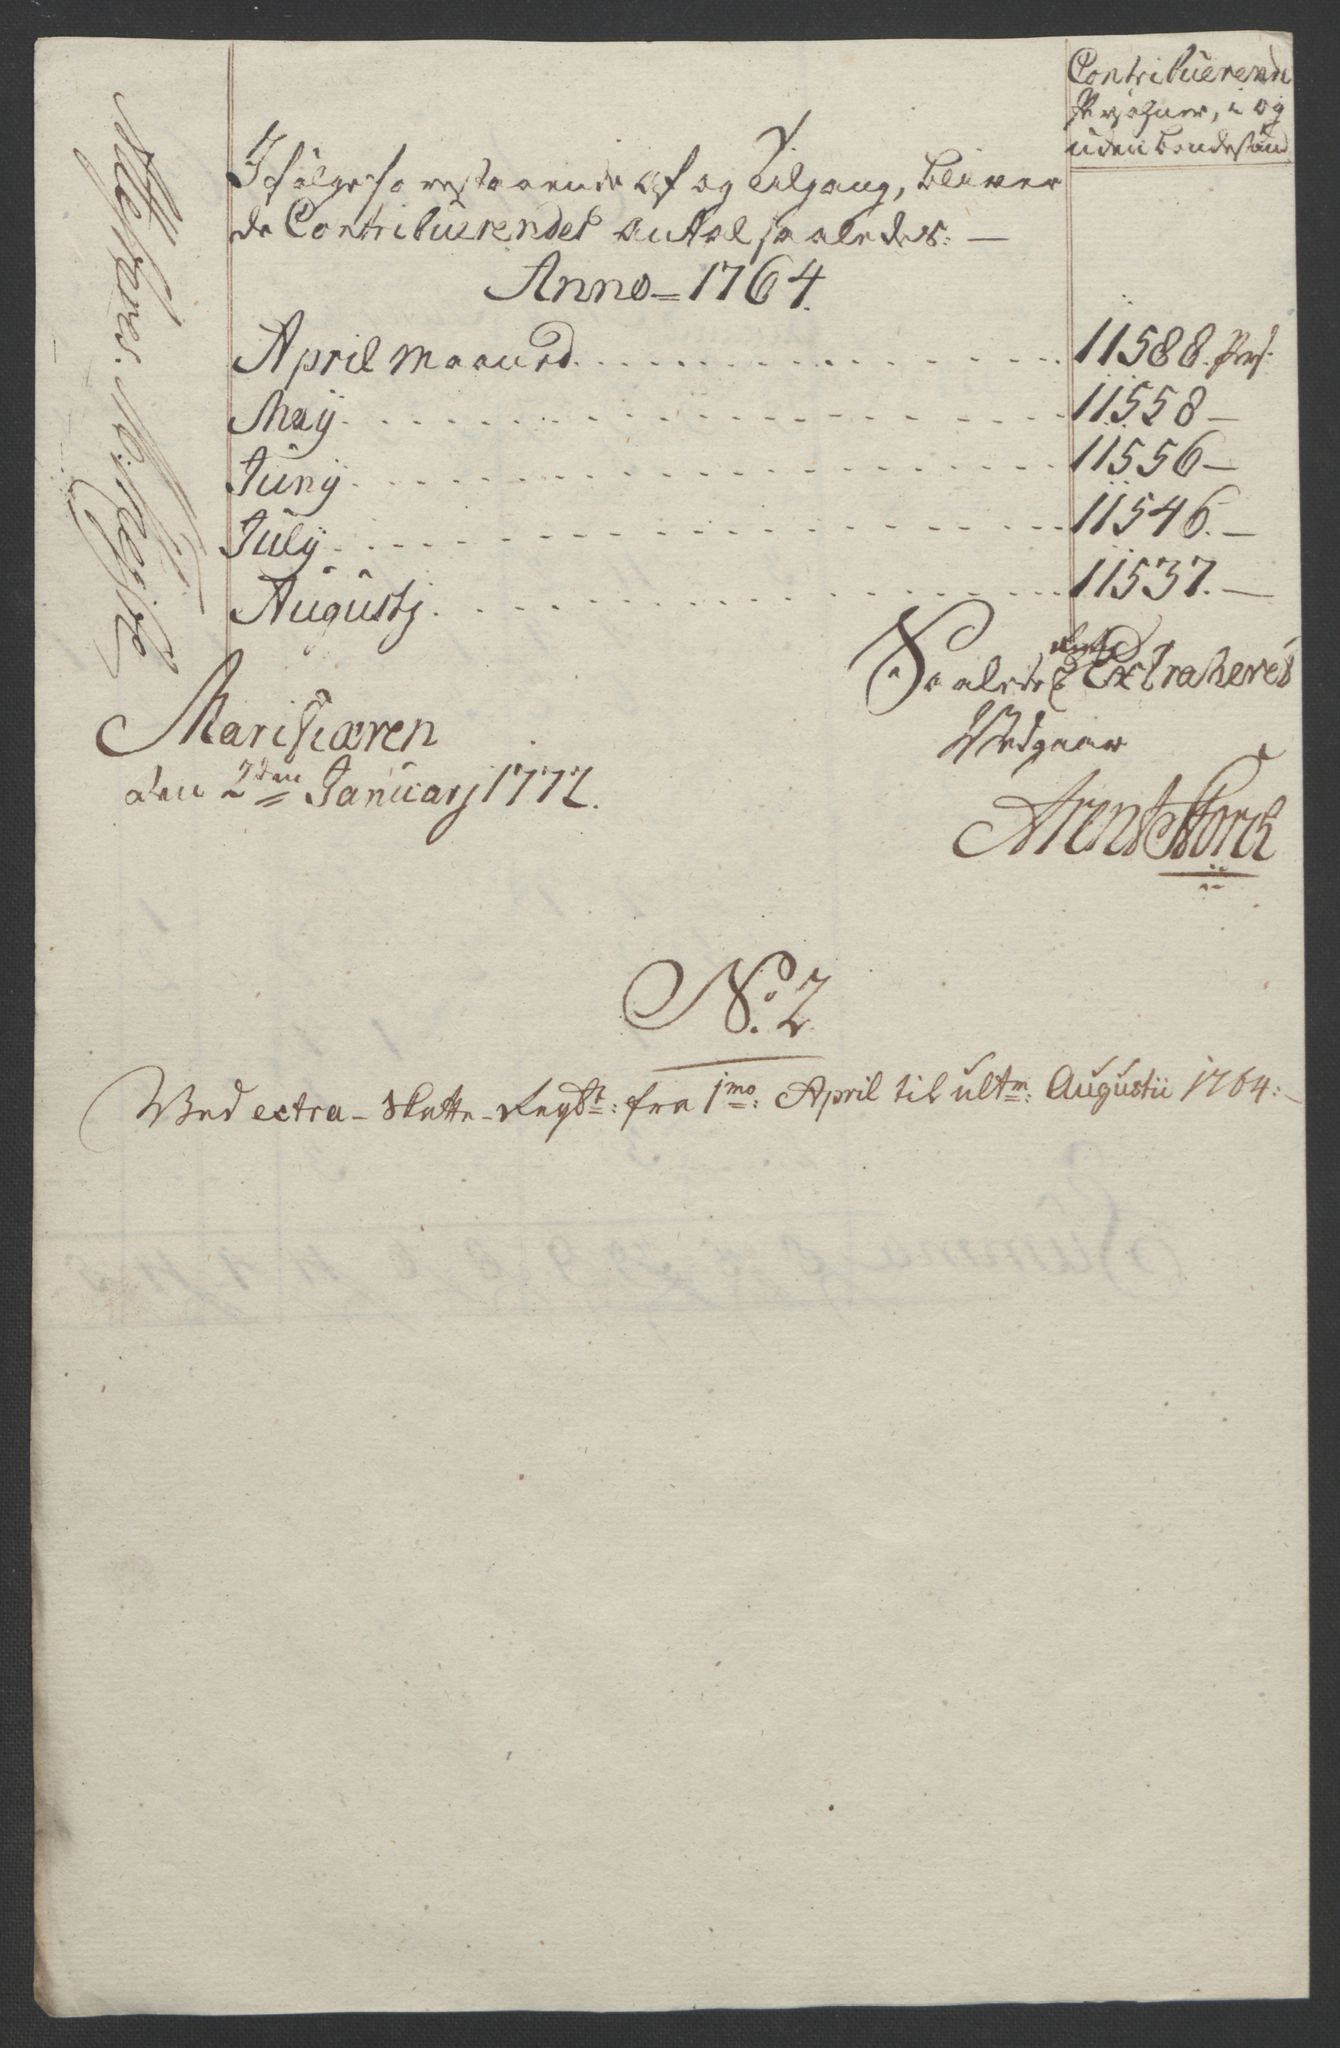 Contribuerende
Persohner, i og
uden bondestand
Ifølge forestaaende af og Tilgang, bliver
de Contribuerendes antal saaledes: —
Anno = 1764.
April Maaned. 11588. Pers:
Maÿ. 11558 —
Junÿ. 11556 —
Julÿ. 11546. —
Augustj. 11537. —
Saaledes Extraheret
Vedgaar
Arent Storch
Marifiæren
den 2den Januarj 1772.
No. 2
Ved extra-Skatte-Regbt: fra 1mo: April til ultm: Augustii 1764: —